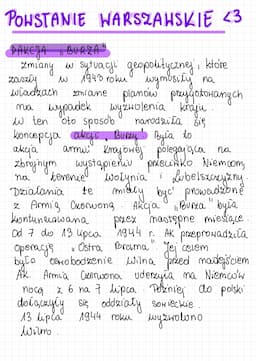 POWSTANIE WARSZAWSKIE <3
① AKCJA „BURZA"
zmiany w sytuacji geopolitycznej, które
zaszły w 1943 roku wymusiły na
władzach zmianę planów przygotowanych
na wypadek wyzwolenia kraju.
W ten oto sposób narodziła się
koncepcja akcji „Burzy". Była to
akcja armii krajowej polegająca na
zbrojnym wystąpieniu przeciwko Niemcom
na terenie Wołynia i Lubelszczyzny.
Działania te miały być prowadzone
z Armią Czerwoną. Akcja „Burza" była
kontynuowana przez następne miesiące.
Od 7 do 13 lipca 1944 r. AK przeprowadziła
operację „Ostra Brama". Jej celem
było oswobodzenie Wilna przed nadejściem
AR. Armia Czerwona uderzyła na Niemców
nocą z 6 na 7 lipca. Później do polski
dołączyły się oddziały sowieckie.
13 lipca 1944 roku wyzwolono
Wilno.